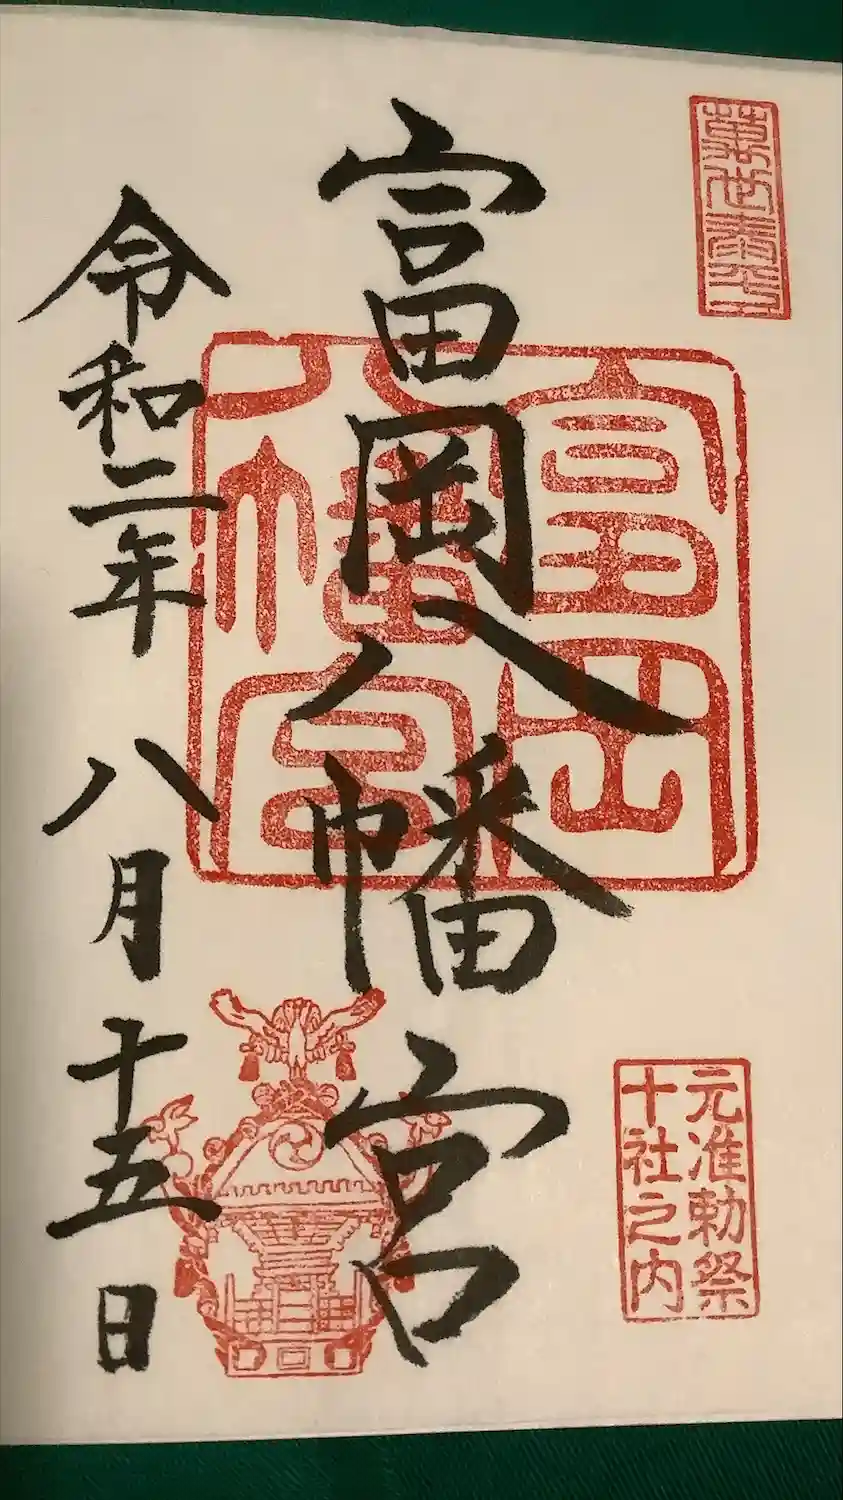 元准勅祭
十社之内
富岡八幡宮
富岡
八幡宮
令和二年 八月十五日